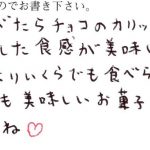 のでお書き下さい。
べたらチョコのカリッ
した食感が美味い
よりいくらでも食べら
も美味しいお菓子
ね♡